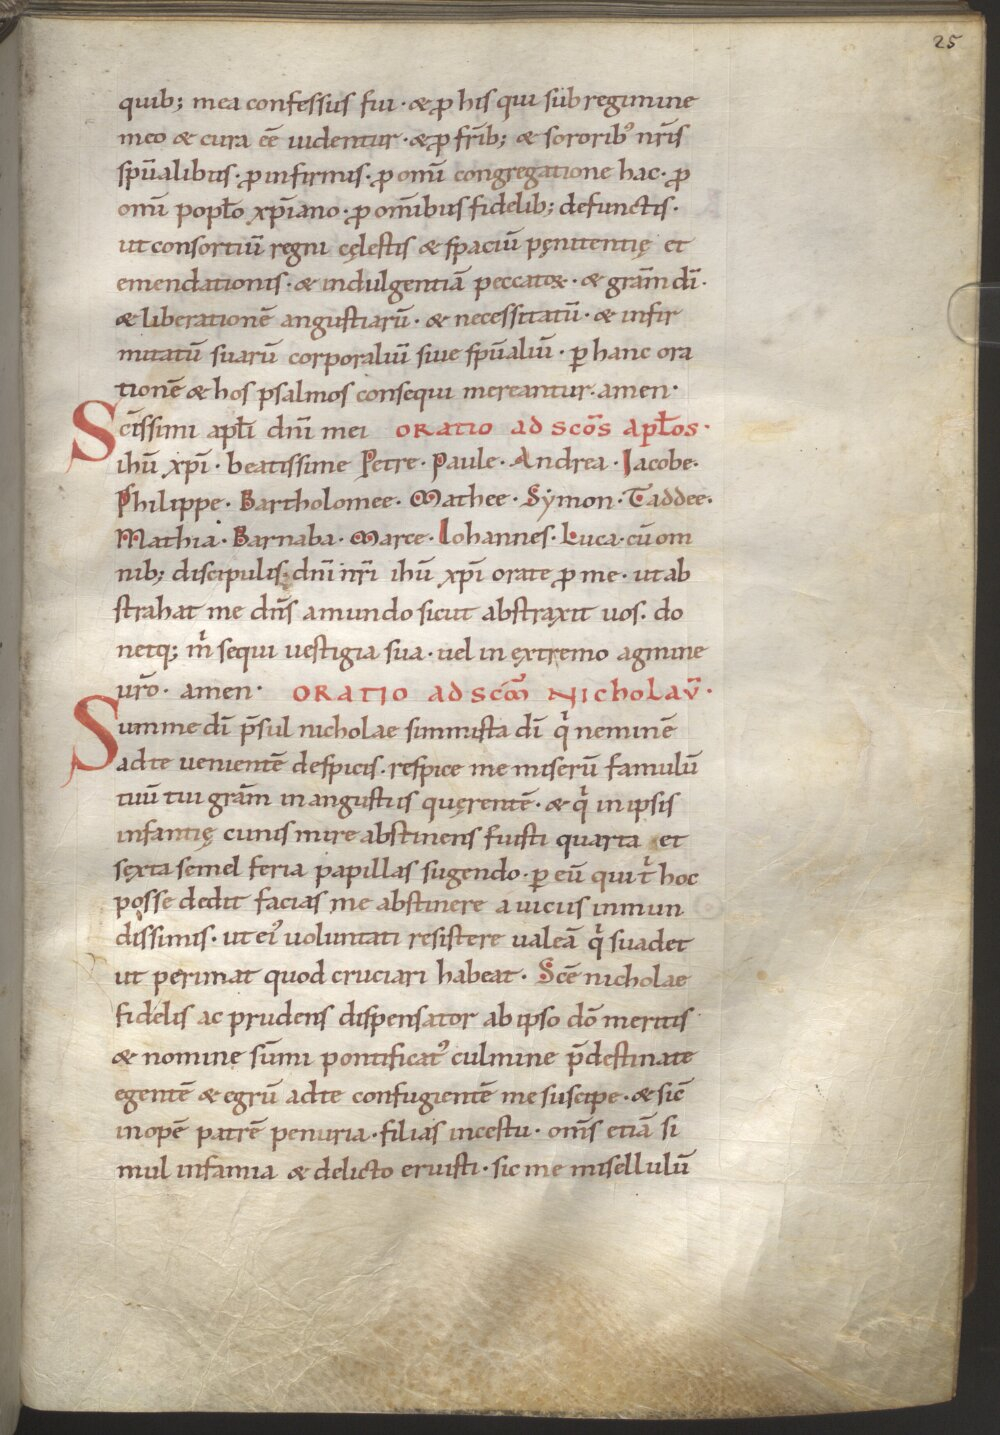 25
quib; mea confessus fui · & p̲ his qui sub regimine
meo & cura eē uidentur · & p̲ frīb; & sororib᾿ nr̄is
spūalibus · p̲ infirmis · p̲ omī congregatione hac · p̲
omī popło xp̄iano · p̲ om̄ibus fidelib; defunctis ·
ut consortiū regni cęlestis & spaciū pęnitentię et
emendationis · & indulgentiā peccatoꝝ · & grām dī ·
& liberationē angustiarū · & necessitatū · & infir
mitatū suarū corporaliū siue spūaliū · p̲ hanc ora
tionē & hos psalmos consequi mereantur · amen ·
Sc̄issimi apłi dn̄i mei ORATIO AD SCŌS APŁOS ·
ihū xp̄i · beatissime Petre · Paule · Andrea · Iacobe ·
Philippe · Bartholomee · Mathee · Sẏmon · Taddee ·
Mathia · Barnaba · Marce · Iohannes · Luca · cū om
nib; discipulis · dn̄i nr̄i ihū xp̄i orate p̲ me · ut ab
strahat me dn̄s a mundo sicut abstraxit uos · do
netq; m̍ sequi uestigia sua · uel in extremo agmine
ur̄o · amen · ORATIO AD SCM̄ NICHOLAV̄ ·
Summe dī p̄sul nicholae simmista dī q̍ neminē
ad te uenientē despicis · respice me miserū famulū
tuū tui grām in angustiis quęrentē · & q̍ in ipsis
infantię cunis mire abstinens fuisti quarta et
sexta semel feria papillas sugendo · p̲ eū qui t̍ hoc
posse dedit facias me abstinere a uiciis inmun
dissimis · ut ei᾿ uoluntati resistere ualeā q̍ suadet
ut perimat quod cruciari habeat · Scē nicholae
fidelis ac prudens dispensator ab ipso dō meritis
& nomine sūmi pontificat᾿ culmine p̄destinate
egentē & egrū ad te confugientē me suscipe · & sic̄
inopē patrē penuria · filias incestu · om̄s etiā si
mul infamia & delicto eruisti · sic me misellulū